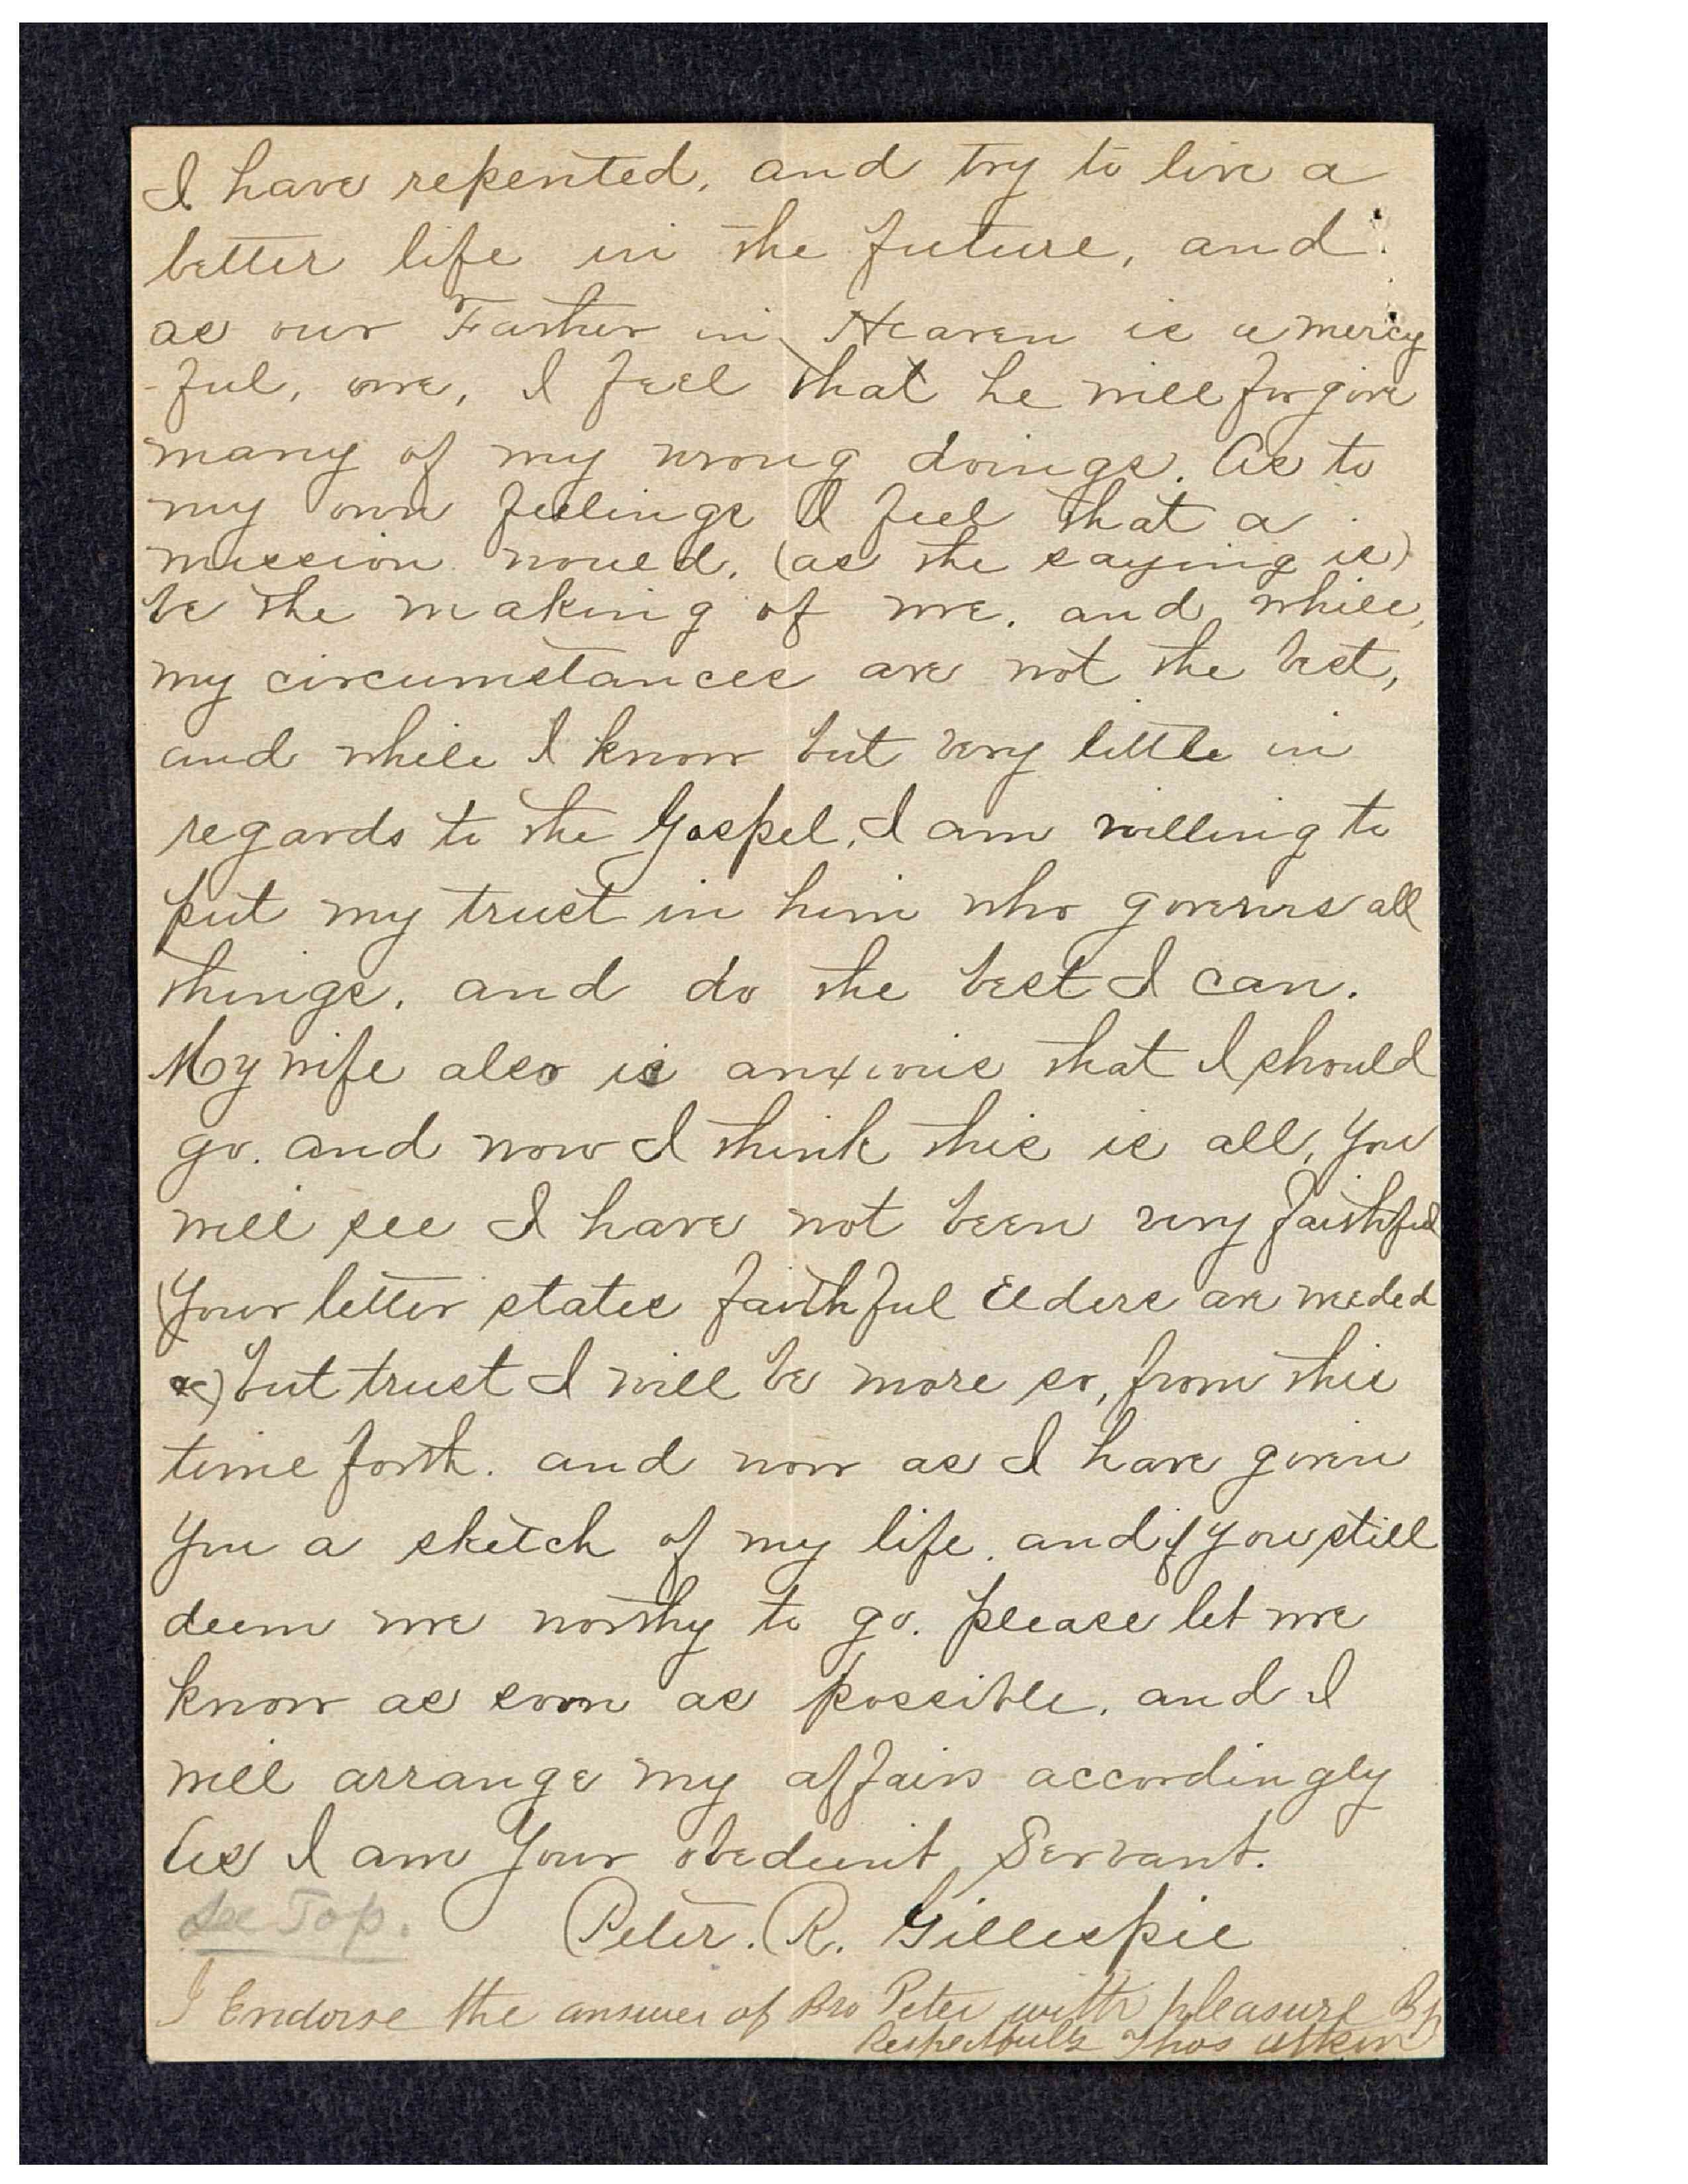 I have repented, and try to live a
better life in the future, and
as our Father in Heaven is a mercy
-ful, one, I feel that he will forgive
many of my wrong doings. As to
my own feelings I feel that a
mission would, (as the saying is)
be the making of me. and while,
my circumstances are not the best,
and while I know but very little in
regards to the Gospel, I am willing to
put my trust in him who governs all
things, and do the best I can.
My wife also is anxious that I should
go. and now I think this is all, you
will see I have not been very faithful
(Your letter states faithful Elders are needed
&c) but trust I will be more so, from this
time forth. and now as I have given
you a sketch of my life. and if you still
deem me worthy to go. please let me
know as soon as possible, and I
will arrange my affairs accordingly
As I am Your obedient Servant.
See Top.
Peter. R. Gillespie
I Endorse the answer of Bro Peter with pleasure Bp
Respectfully Thos Atkin